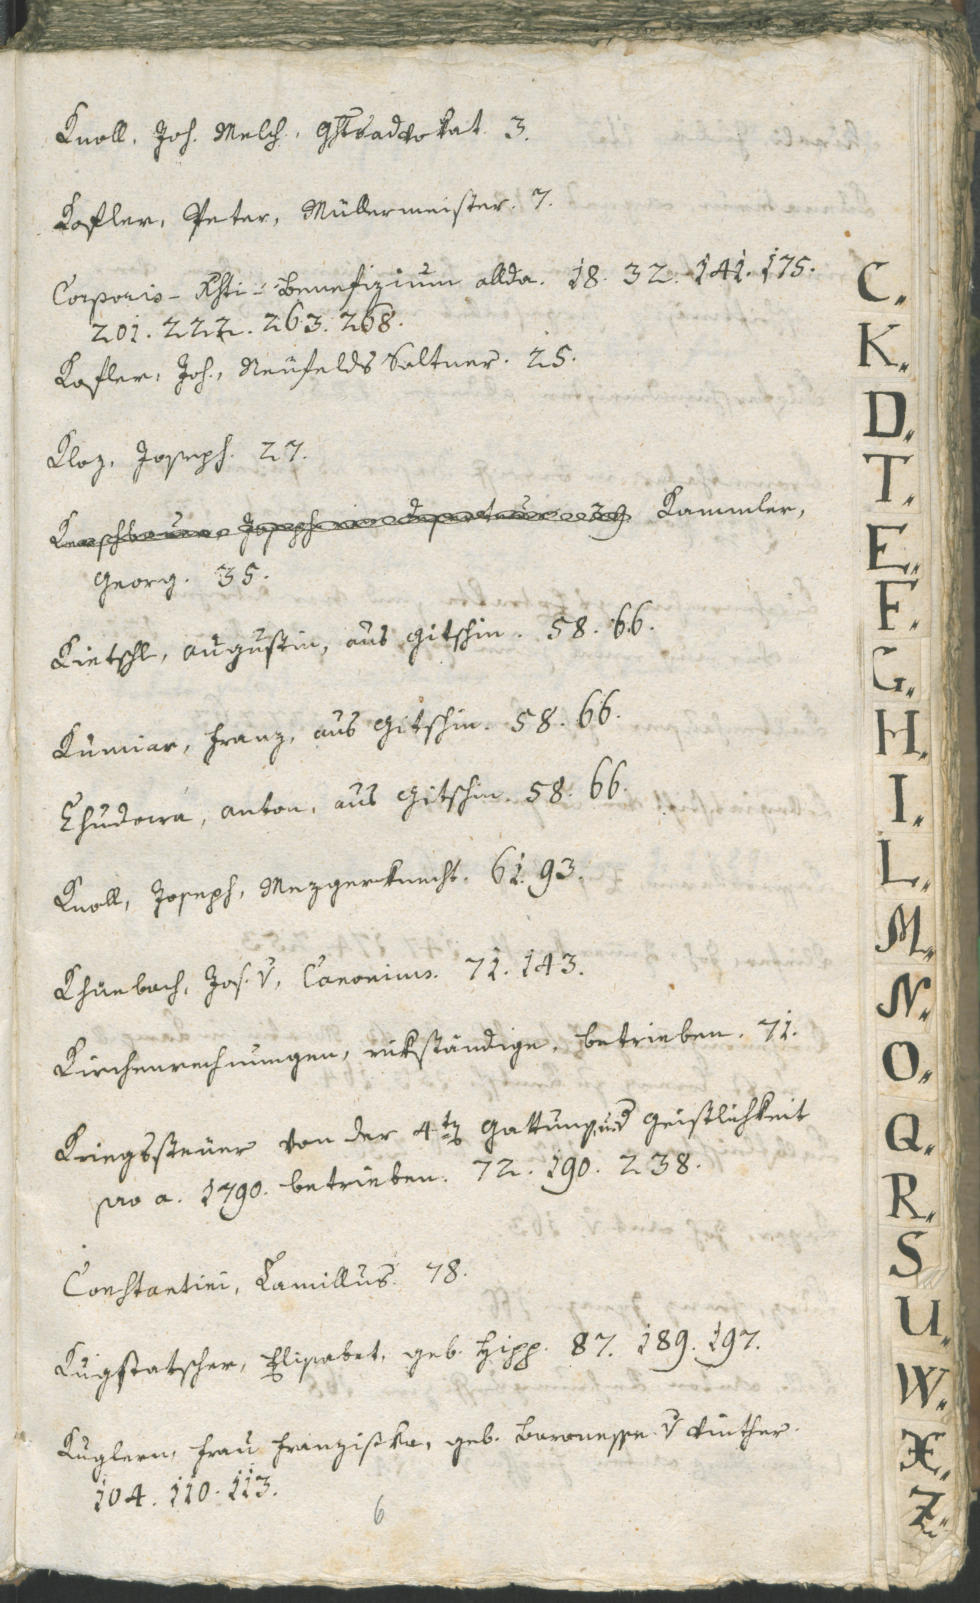 Knoll, Joh. Melch. Ghtsadvokat 3.
Kofler, Peter, Müllermeister. 7.
Corporis-Xsti-Benefizium allda. 18. 32. 141. 175.
201. 222. 263. 268.
Kofler, Joh., Neufelds Saltner. 25.
Kloz, Joseph. 27.
Kerschbaumer Joseph 39 Kammler,
Georg. 35.
Kietschl, Augustin, aus Gitschin. 58. 66.
Kumiar, Franz, aus Gitschin. 58. 66.
Chudowa, Anton, aus Gitschin. 58. 66.
Knoll, Joseph, Mezgerknecht. 61. 93.
Khünbach, Jos. v, Canonicus. 71. 143.
Kirchenrechnungen, rükständige, betrieben. 71.
Kriegssteuer von der 4tn Gattung und Geistlichkeit
pro a. 1790. betrieben. 72. 190. 238.
Constantini, Kamillus. 78.
Kugstatscher, Elisabet, geb. Hipp. 87. 189. 197.
Kuglern, Frau Franziska, geb. Baronesse v Vinther.
104. 110. 113.
6
C.
K.
D.
T.
E.
F.
G.
H.
I.
L.
M.
N.
O.
Q.
R.
S
U.
W.
X.
Z.